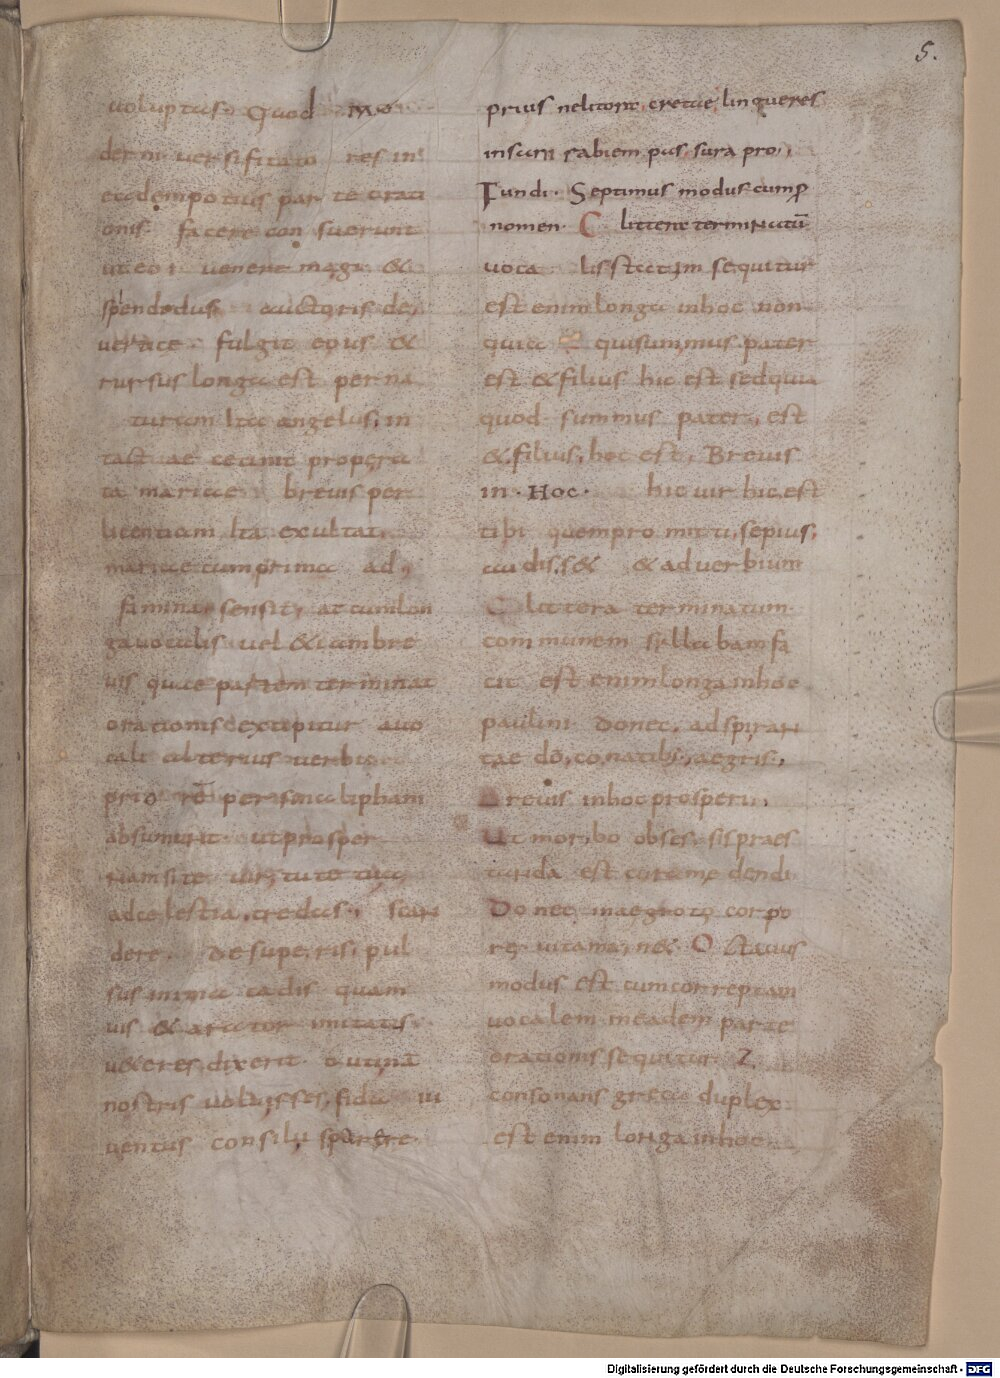 5.
uoluptas. Quod mo
derni uersificato res in
eadem potius parte orati
onis facere consuerunt
ut eoi uenere magi &
spendidus auctoris de
uertice fulgit eous &
rursus longa est per na
turam Ita angelus, in
tactae cecinit propera
ta mariae breuis per
licentiam Ita exultat,
mariae cum prima ad
famina, sensit, at cum lon
ga uocalis uel &iam bre
uis quae partem terminat
orationis & excipitur a uo
cali alterius uerbi
prio re per sinalipham
absumit ut prosper
nam si te uirtute tua
ad celestia, credas, scan
dere, de superis, pul
sus in ima cadis quam
uis & arator imitatus
ueteres dixerit o utinā
nostris uoluisses, fida iu
uentus consilii, sperare
prius linqueres
insani rabiem pus, sura pro,
fundi. Septimus modus cum p
nomen. C littera terminatū
uoca lis statim sequitur
est enim longa in hoc non
quia qui summus pater
est & filius hic est sed quia
quod summus pater, est
& filius, hoc est, Breuis
in . HOC . hic uir hic est
tibi quem promitti, sepius,
au dis, s& & aduerbium
C littera terminatum.
communem sillabam fa
cit est enim longa in hoc
paulini donec, ad spiran
tae dō, conatibs, aegris,
Breuis in hoc prosperi,
Ut morbo obses, sis praes
tanda est cura me dendi
Donec, in aegroto corpo
re uita ma, n& Octauus
modus est cum correptam
uocalem in eadem parte
orationis sequitur Z
consonans greca duplex
est enim longa in hoc
Digitalisierung gefördert durch die Deutsche Forschungsgemeinschaft - DFG